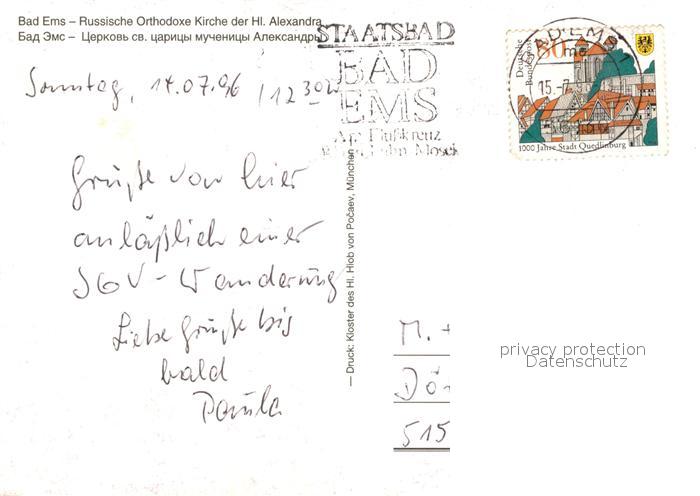 Bad Ems – Russische Orthodoxe Kirche der Hl. Alexandra
Бад Эмс – Церковь св. царицы мученицы Александры
Sonntag, 14.07.96
Grüße von hier
anläßlich einer
SGV-Wanderung
Liebe Grüße bis
bald
Paula
— Druck: Kloster des Hl. Hiob von Počaev, München
STAATSBAD
BAD
EMS
Deutsche
Bundespost
80
15.-7.
1000 Jahre Stadt Quedlinburg
M.
Dö
515
privacy protection
Datenschutz